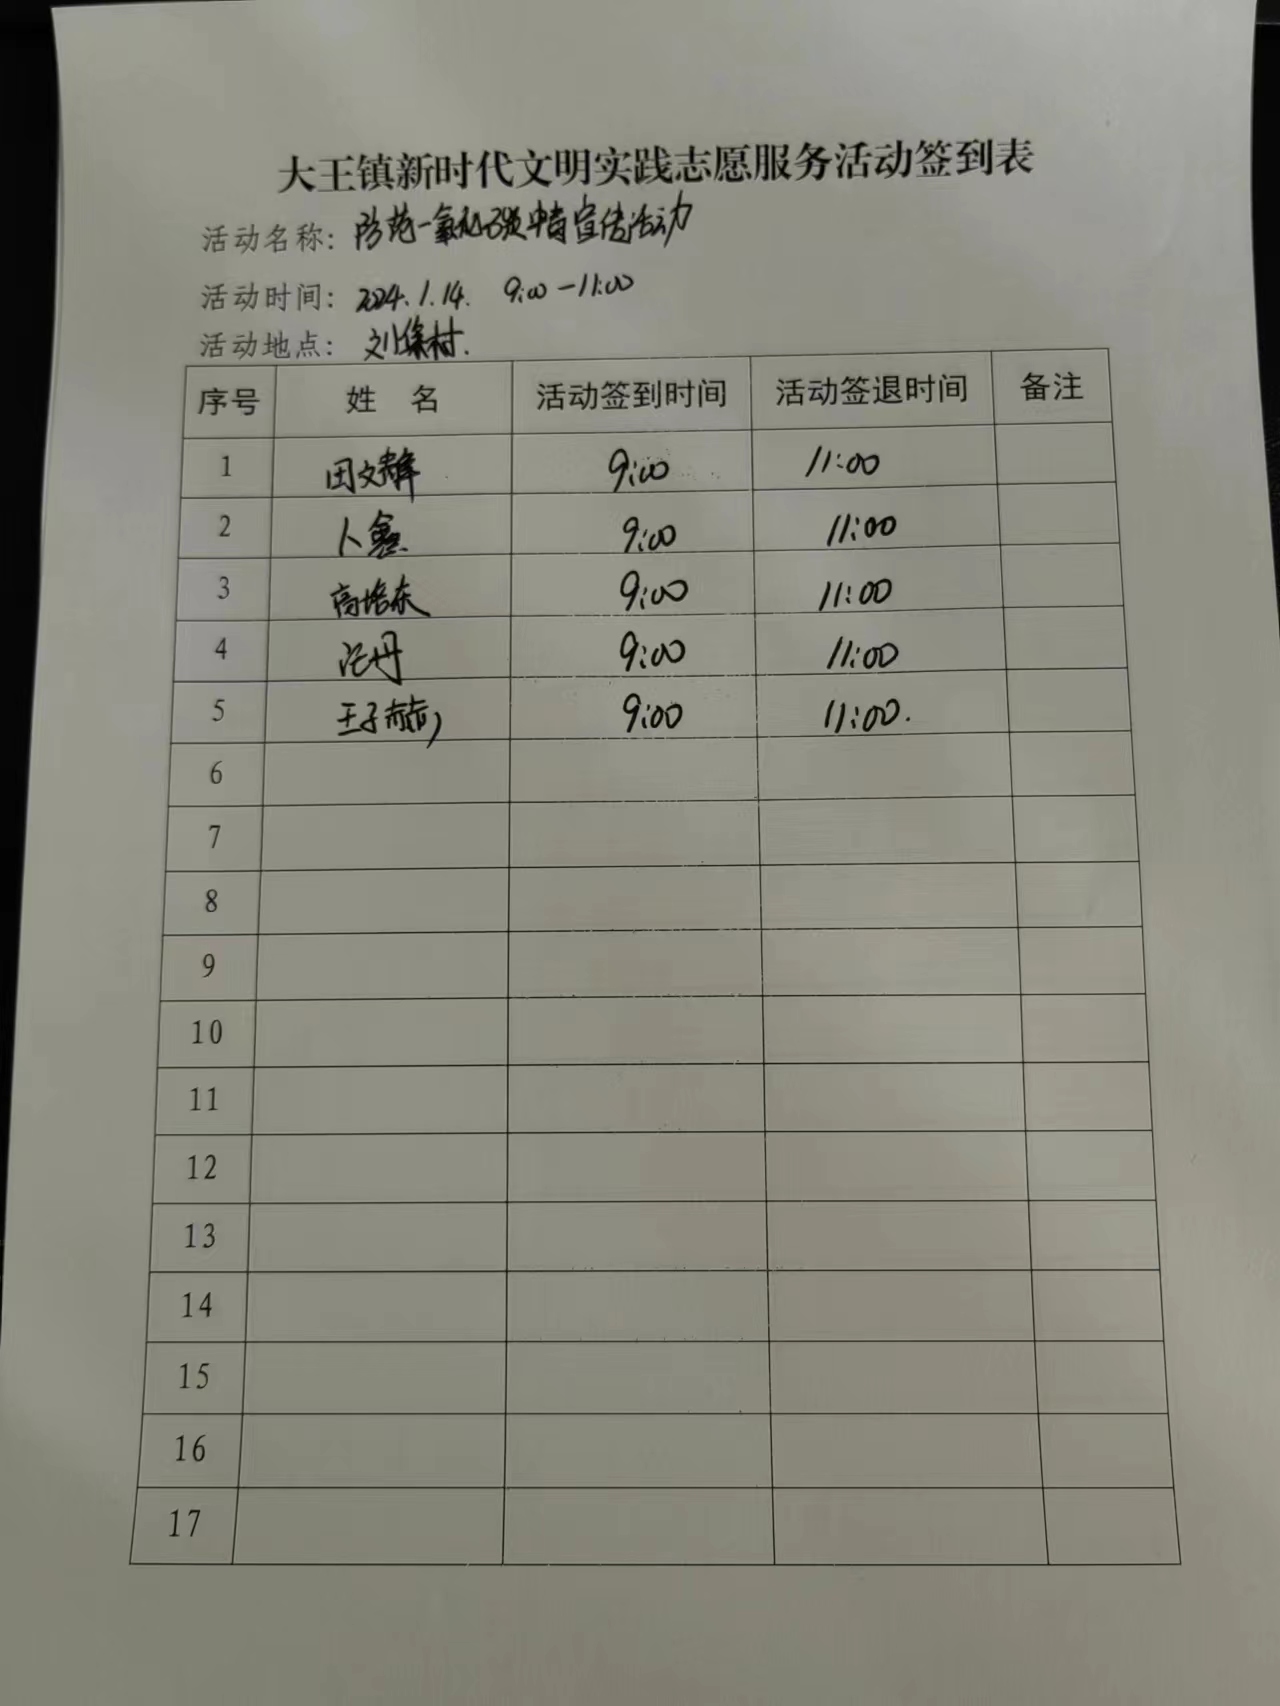 大王镇新时代文明实践志愿服务活动签到表
活动名称：防范一氧化碳中毒宣传活动
活动时间：2024.1.14. 9:00-11:00
活动地点：刘集村.
序号 姓 名 活动签到时间 活动签退时间 备注
1 田文 9:00 11:00
2 卜鑫 9:00 11:00
3 高培东 9:00 11:00
4 丹 9:00 11:00
5 王子赫 9:00 11:00.
6
7
8
9
10
11
12
13
14
15
16
17